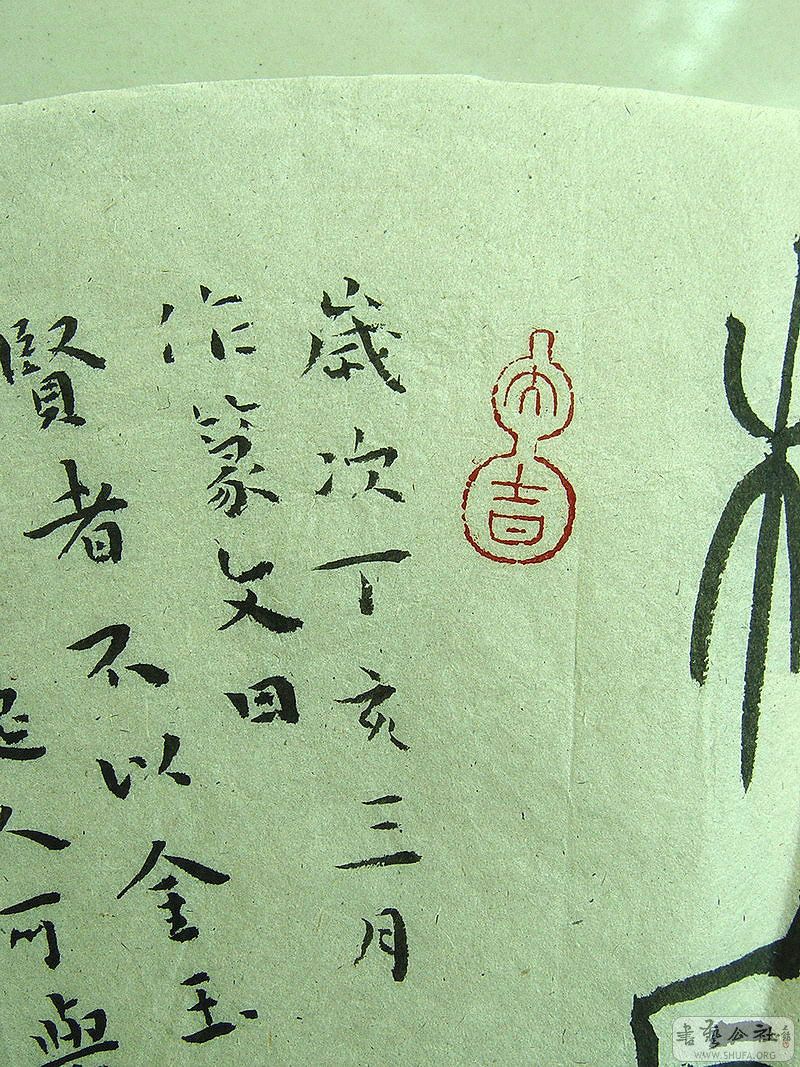 大吉
歲次丁亥三月
作篆文曰
賢者不以金玉
人可與
書藝公社
WWW.SHUFA.ORG